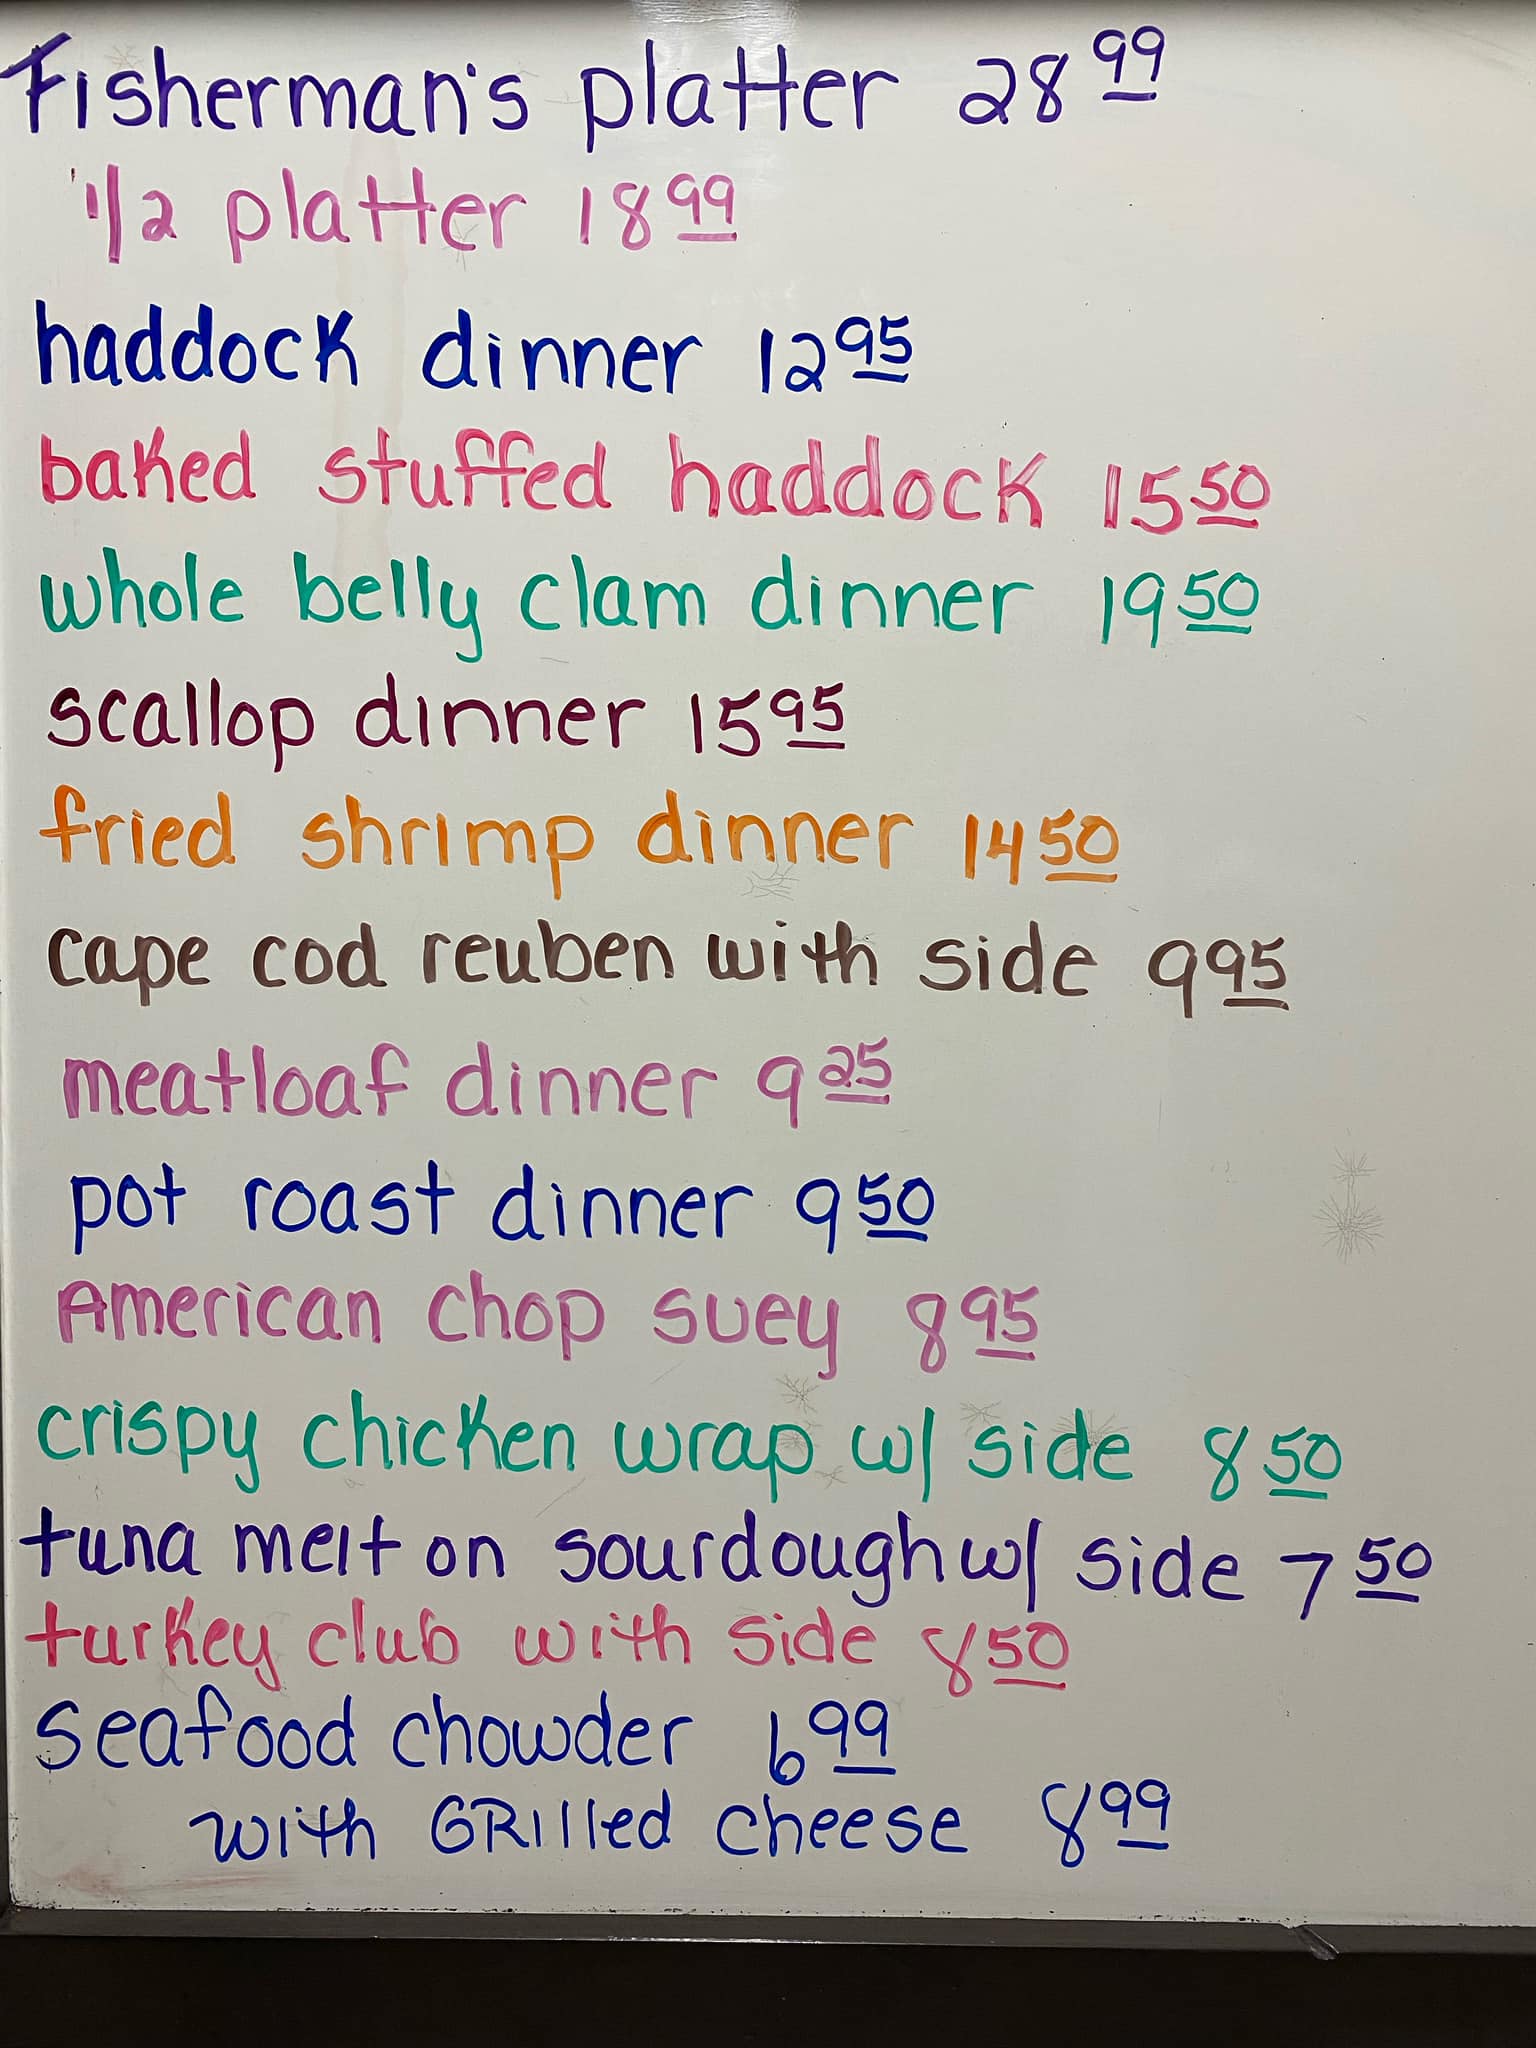 Fisherman's platter 28 99
1/2 platter 18 99
haddock dinner 12 95
baked stuffed haddock 15 50
whole belly clam dinner 19 50
scallop dinner 15 95
fried shrimp dinner 14 50
cape cod reuben with side 9 95
meatloaf dinner 9 25
pot roast dinner 9 50
American chop suey 8 95
crispy chicken wrap w/ side 8 50
tuna melt on sourdough w/ side 7 50
turkey club with side 8 50
seafood chowder 6 99
with GRilled cheese 8 99